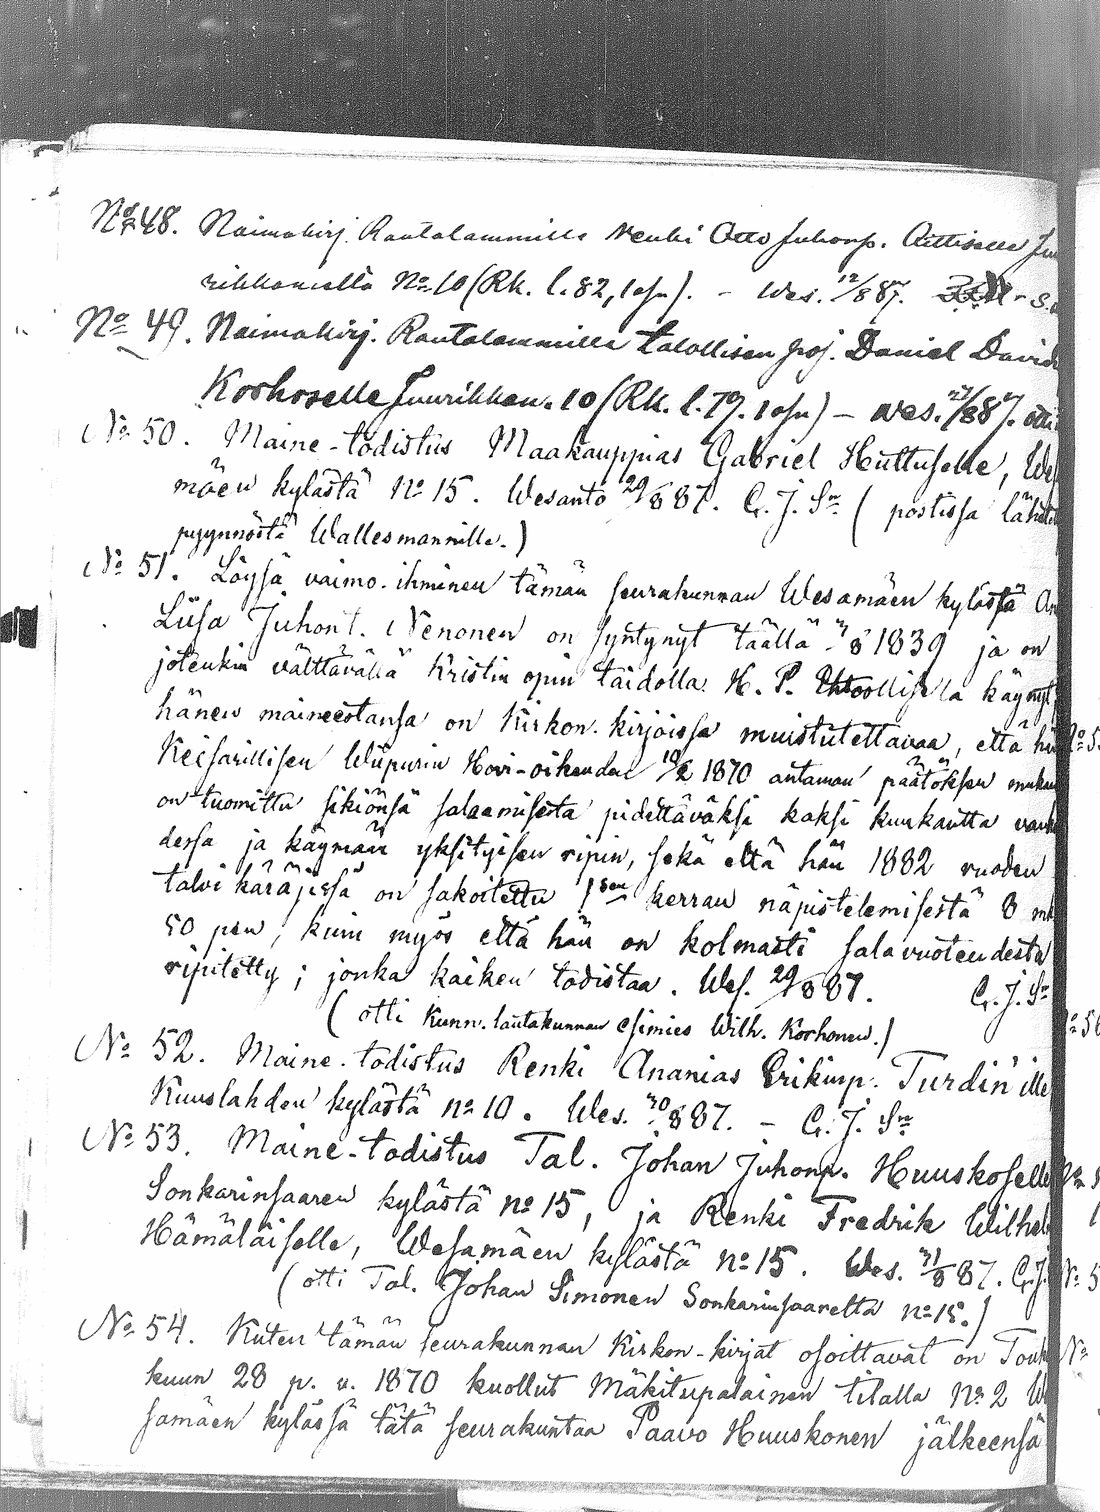 No 48. Naimakirj. Rautalammille renki Otto Juhonp. Aittiselle Juu
rikkaniellä No 10 (Rk. l. 82, 1 osu). – Wes. 12/8 87. S.
No 49. Naimakirj. Rautalammille talollisen poj. Daniel David
Korhoselle Juurikkan. 10 (Rk. l. 79. 1 osu) – Wes. 27/8 87. otti
No 50. Maine-todistus Maakauppias Gabriel Huttuselle, Wes
mäen kylästä No 15. Wesanto 29/8 87. G. J. Sn (postissa lähet
pyynnöstä Wallesmannille.)
No 51. Löysä vaimo-ihminen tämän seurakunnan Wesamäen kylästä An
Liisa Juhont. Nenonen on syntynyt täällä 7/8 1839 ja on
jotenkin välttävällä Kristin opin taidolla H. P. Ehtoollisella käynyt,
hänen maineestansa on Kirkon-kirjoissa muistutettavaa, että hän
Keisarillisen Wiipurin Hovi-oikeuden 10/2 1870 antaman päätöksen mukaan
on tuomittu sikiönsä salaamisesta pidettäväksi kaksi kuukautta vank
dessa ja käymään yksityisen ripin, sekä että hän 1882 vuoden
talvi käräjissä on sakoitettu 1sen kerran näpistelemisestä 8 mk
50 pen, kuin myös että hän on kolmasti salavuoteudesta
ripitetty; jonka kaiken todistaa. Wes. 29/8 87. G. J. Sn
(otti Kunn. lautakunnan esimies Wilh. Korhonen.)
No 52. Maine-todistus Renki Ananias Erikinp. Turdin'ille
Kuuslahden kylästä no 10. Wes. 30/8 87. – G. J. Sn
No 53. Maine-todistus Tal. Johan Juhonp. Huuskoselle
Sonkarinsaaren kylästä no 15, ja Renki Fredrik Wilhel
Hämäläiselle, Wesamäen kylästä no 15. Wes. 31/8 87. G. J.
(otti Tal. Johan Simonen Sonkarinsaarelta no 15.)
No 54. Kuten tämän seurakunnan Kirkon-kirjat osoittavat on Touk
kuun 28 p. v. 1870 kuollut Mäkitupalainen tilalla No 2 We
samäen kylässä tätä seurakuntaa Paavo Huuskonen jälkeensä